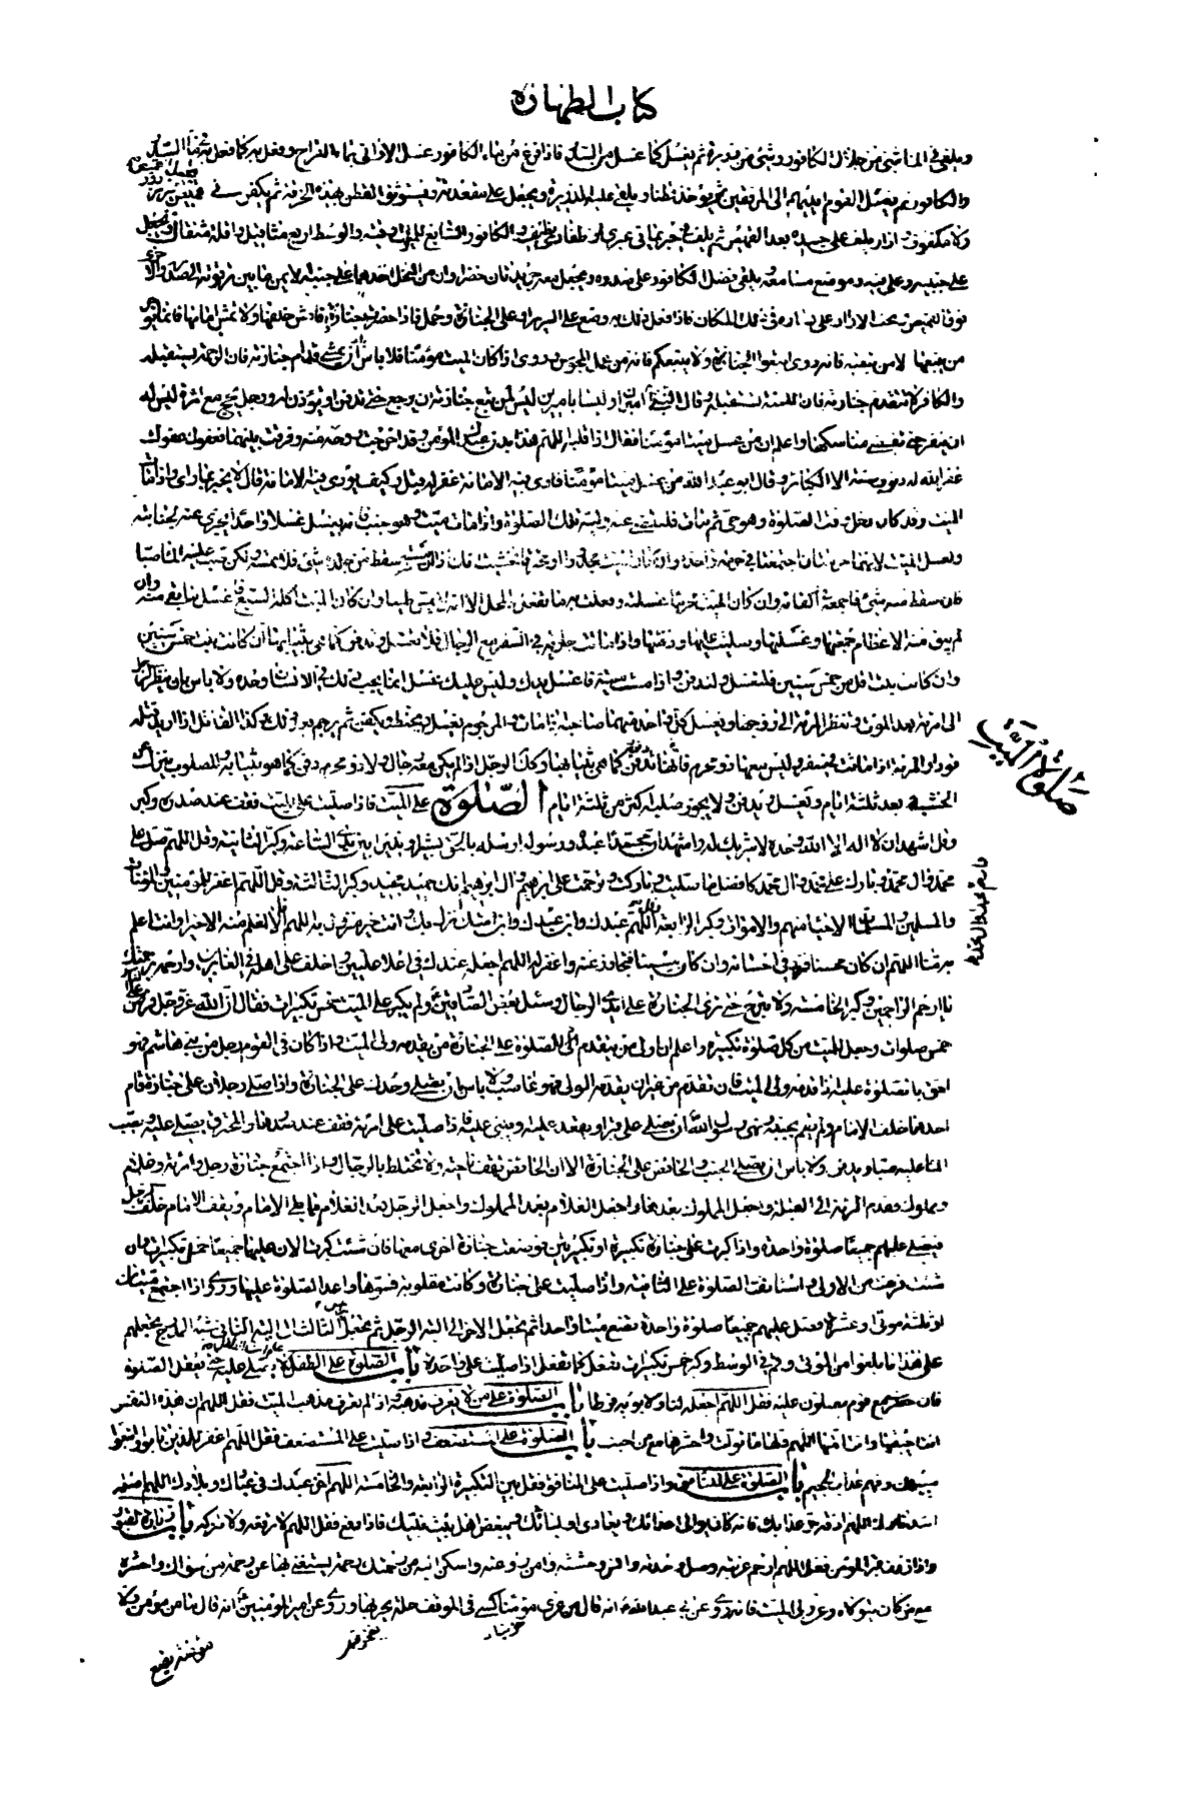 كتاب الطهارة
ويلقي في الماء شئ من جلال الكافور وشئ من ذريرة ثم يغسل كما غسل من السدر فاذا فرغ من ماء الكافور غسل الاخرى بماء القراح وفعل به كما فعل في ماء السدر
والكافور ثم يغسل القوم ايديهم الى المرفقين ثم يؤخذ قطنا ويلقي عليه الذريرة ويجعل على مقعدته ويستوثق القطن بهذه الخرقة ثم يكفن في قميص
ولا مكفوف وازار يلف على جسده بعد القميص ثم يلف في حبر يماني عبري او ظفاري نظيف والكافور السابغ للميت اوقية والوسط اربع مثاقيل واقله مثقال ويجعل
على جبينه وعلى فيه وموضع مسامعه ويلقي فضل الكافور على صدره ويجعل معه جريدتان خضراوان من النخل احدهما على جنبه الايمن ما بين ترقوته
فوق القميص تحت الازار على يساره في ذلك المكان فاذا فعل ذلك به وضع على السرير او على الجنازة وحمل فاذا حضرت جنازة فامش خلفها ولا تمش امامها فانما يؤجر
من يتبعها لا من يتبعه فانه روي اتبعوا الجنازة ولا تتبعكم فانه من عمل المجوس وروي اذا كان الميت مؤمنا فلا باس ان يمشي قدام جنازته فان الرحمة يستقبله
والكافر لا تتقدم جنازته فان اللعنة تستقبله وقال النبي اميران وليسا باميرين ليس لمن تبع جنازة ان يرجع حتى تدفن او يؤذن له ورجل يحج مع امرأة ليس له
ان ينفر حتى تقضي مناسكها واعلم ان من غسل ميتا مؤمنا فقال اذا قلبه اللهم هذا بدن عبدك المؤمن وقد اخرجت روحه منه وفرقت بينهما فعفوك عفوك
غفر الله له ذنوب سنة الا الكبائر وقال ابو عبد الله من غسل ميتا مؤمنا فادى فيه الامانة غفر له قيل وكيف يؤدي فيه الامانة قال لا يخبر بما راى واذا مات
الميت وقد كان دخل وقت الصلوة وهو حي ثم مات فليقض عنه وليه تلك الصلوة واذا مات ميت وهو جنب فانه يغسل غسلا واحدا يجزي عنه لجنابته
ولغسل الميت لانهما حرمتان اجتمعتا في حرمة واحدة
فان سقط منه شئ فاجمعه في اكفانه
لم يبق منه الا عظام جمعتها وغسلتها وصليت عليها ودفنتها واذا ماتت جارية في السفر مع الرجال فلا تغسل وتدفن كما هي بثيابها ان كانت بنت خمس سنين
وان كانت بنت اقل من خمس سنين فلتغسل ولتدفن واذا مسست ميتة فاغسل يديك وليس عليك غسل انما يجب ذلك في الانسان وحده ولا باس بان ينظر الرجل
الى امرأته بعد الموت وتنظر المرأة الى زوجها ويغسل كل واحد منهما صاحبه اذا مات والمرجوم يغسل ويحنط ويكفن ثم يرجم بعد ذلك وكذا القاتل اذا اريد قتله
قودا والمرأة اذا ماتت في سفر وليس معها ذو محرم فانها تدفن كما هي بثيابها وكذلك الرجل اذا لم يكن معه رجال ولا ذو محرم دفن كما هو بثيابه والمصلوب ينزل عن
الخشبة بعد ثلثة ايام ويغسل ويدفن ولا يجوز صلبه اكثر من ثلثة ايام الصلوة على الميت فاذا صليت على الميت فقف عند صدره وكبر
وقل اشهد ان لا اله الا الله وحده لا شريك له واشهد ان محمدا عبده ورسوله ارسله بالحق بشيرا ونذيرا بين يدي الساعة وكبر الثانية وقل اللهم صل على
محمد وال محمد وبارك على محمد وال محمد كافضل ما صليت وباركت وترحمت على ابرهيم وال ابرهيم انك حميد مجيد وكبر الثالثة وقل اللهم اغفر للمؤمنين والمؤمنات
والمسلمين والمسلمات الاحياء منهم والاموات وكبر الرابعة وقل اللهم عبدك وابن عبدك وابن امتك نزل بك وانت خير منزول به اللهم انا لا نعلم منه الا خيرا وانت اعلم
به منا اللهم ان كان محسنا فزد في احسانه وان كان مسيئا فتجاوز عنه واغفر له اللهم اجعله عندك في اعلا عليين واخلف على اهله في الغابرين وارحمه برحمتك
يا ارحم الراحمين وكبر الخامسة ولا تبرح حتى ترى الجنازة على ايدي الرجال وسئل بعض الصادقين لم يكبر على الميت خمس تكبيرات فقال ان الله عز وجل فرض
خمس صلوات وجعل للميت من كل صلوة تكبيرة واعلم ان اولى من يتقدم للصلوة على الجنازة من يقدمه ولي الميت واذا كان في القوم رجل من بني هاشم فهو
احق بالصلوة عليه اذا قدمه ولي الميت فان تقدم من غير ان يقدمه الولي فهو غاصب ولا باس ان يصلي وحدك على الجنازة واذا صلى رجلان على جنازة قام
احدهما خلف الامام ولم يقم بجنبه ونهى رسول الله ان يصلي على قبر او يقعد عليه ويبنى عليه فاذا صليت على امرأة فقف عند صدرها والمحترق يصلى عليه ويصب
الماء عليه صبا ويدفن ولا باس ان يصلي الجنب والحائض على الجنازة الا ان الحائض تقف ناحية ولا تختلط بالرجال واذا اجتمع جنازة رجل وامرأة وغلام
ومملوك فقدم المرأة الى القبلة واجعل المملوك بعدها واجعل الغلام بعد المملوك واجعل الرجل بعد الغلام مما يلي الامام ويقف الامام خلف الرجل
فيصلي عليهم جميعا صلوة واحدة واذا كبرت على جنازة تكبيرة او تكبيرتين فوضعت جنازة اخرى معها فان شئت كبرت الان عليها جميعا خمس تكبيرات وان
شئت فرغت من الاولى واستانفت الصلوة على الثانية واذا صليت على جنازة وكانت مقلوبة فسوها واعد الصلوة عليها وروي اذا اجتمع ميتان
او ثلثة موتى او عشرة فصل عليهم جميعا صلوة واحدة تضع ميتا واحدا ثم يجعل الاخر الى الية الرجل ثم يجعل الثالث الى الية الثاني شبه المدرج تجعلهم
على هذا ما بلغوا من الموتى وقم في الوسط وكبر خمس تكبيرات تفعل كما تفعل اذا صليت على واحدة باب الصلوة على الطفل لا يصلى عليه حتى يعقل الصلوة
فان حضرت مع قوم يصلون عليه فقل اللهم اجعله لنا ولابويه فرطا باب الصلوة على من لا يعرف مذهبه اذا لم تعرف مذهب الميت فقل اللهم ان هذه النفس
انت احييتها وانت امتها اللهم ولها ما تولت واحشرها مع من احبت باب الصلوة على المستضعف واذا صليت على المستضعف فقل اللهم اغفر للذين تابوا واتبعوا
سبيلك وقهم عذاب الجحيم باب الصلوة على المنافق واذا صليت على المنافق فقل بين التكبيرة الرابعة والخامسة اللهم اخز عبدك في عبادك وبلادك اللهم اصله
اشد نارك اللهم اذقه حر عذابك فانه كان يوالي اعدائك ويعادي اوليائك ويبغض اهل بيت نبيك فاذا رفع فقل اللهم لا ترفعه ولا تزكه باب زيارة القبور
واذا زرت قبر المؤمن فقل اللهم ارحم غربته وصل وحدته وانس وحشته وامن روعته واسكن اليه من رحمتك رحمة يستغني بها عن رحمة من سواك واحشره
مع من كان يتولاه وعز ولي الميت فانه روي عن ابي عبد الله انه قال من عزى مؤمنا كسي في الموقف حلة يحبر بها وروي عن امير المؤمنين انه قال ما من مؤمن ولا
مؤمنة يضع
صلوة الميت
وارحم محمدا وال محمد